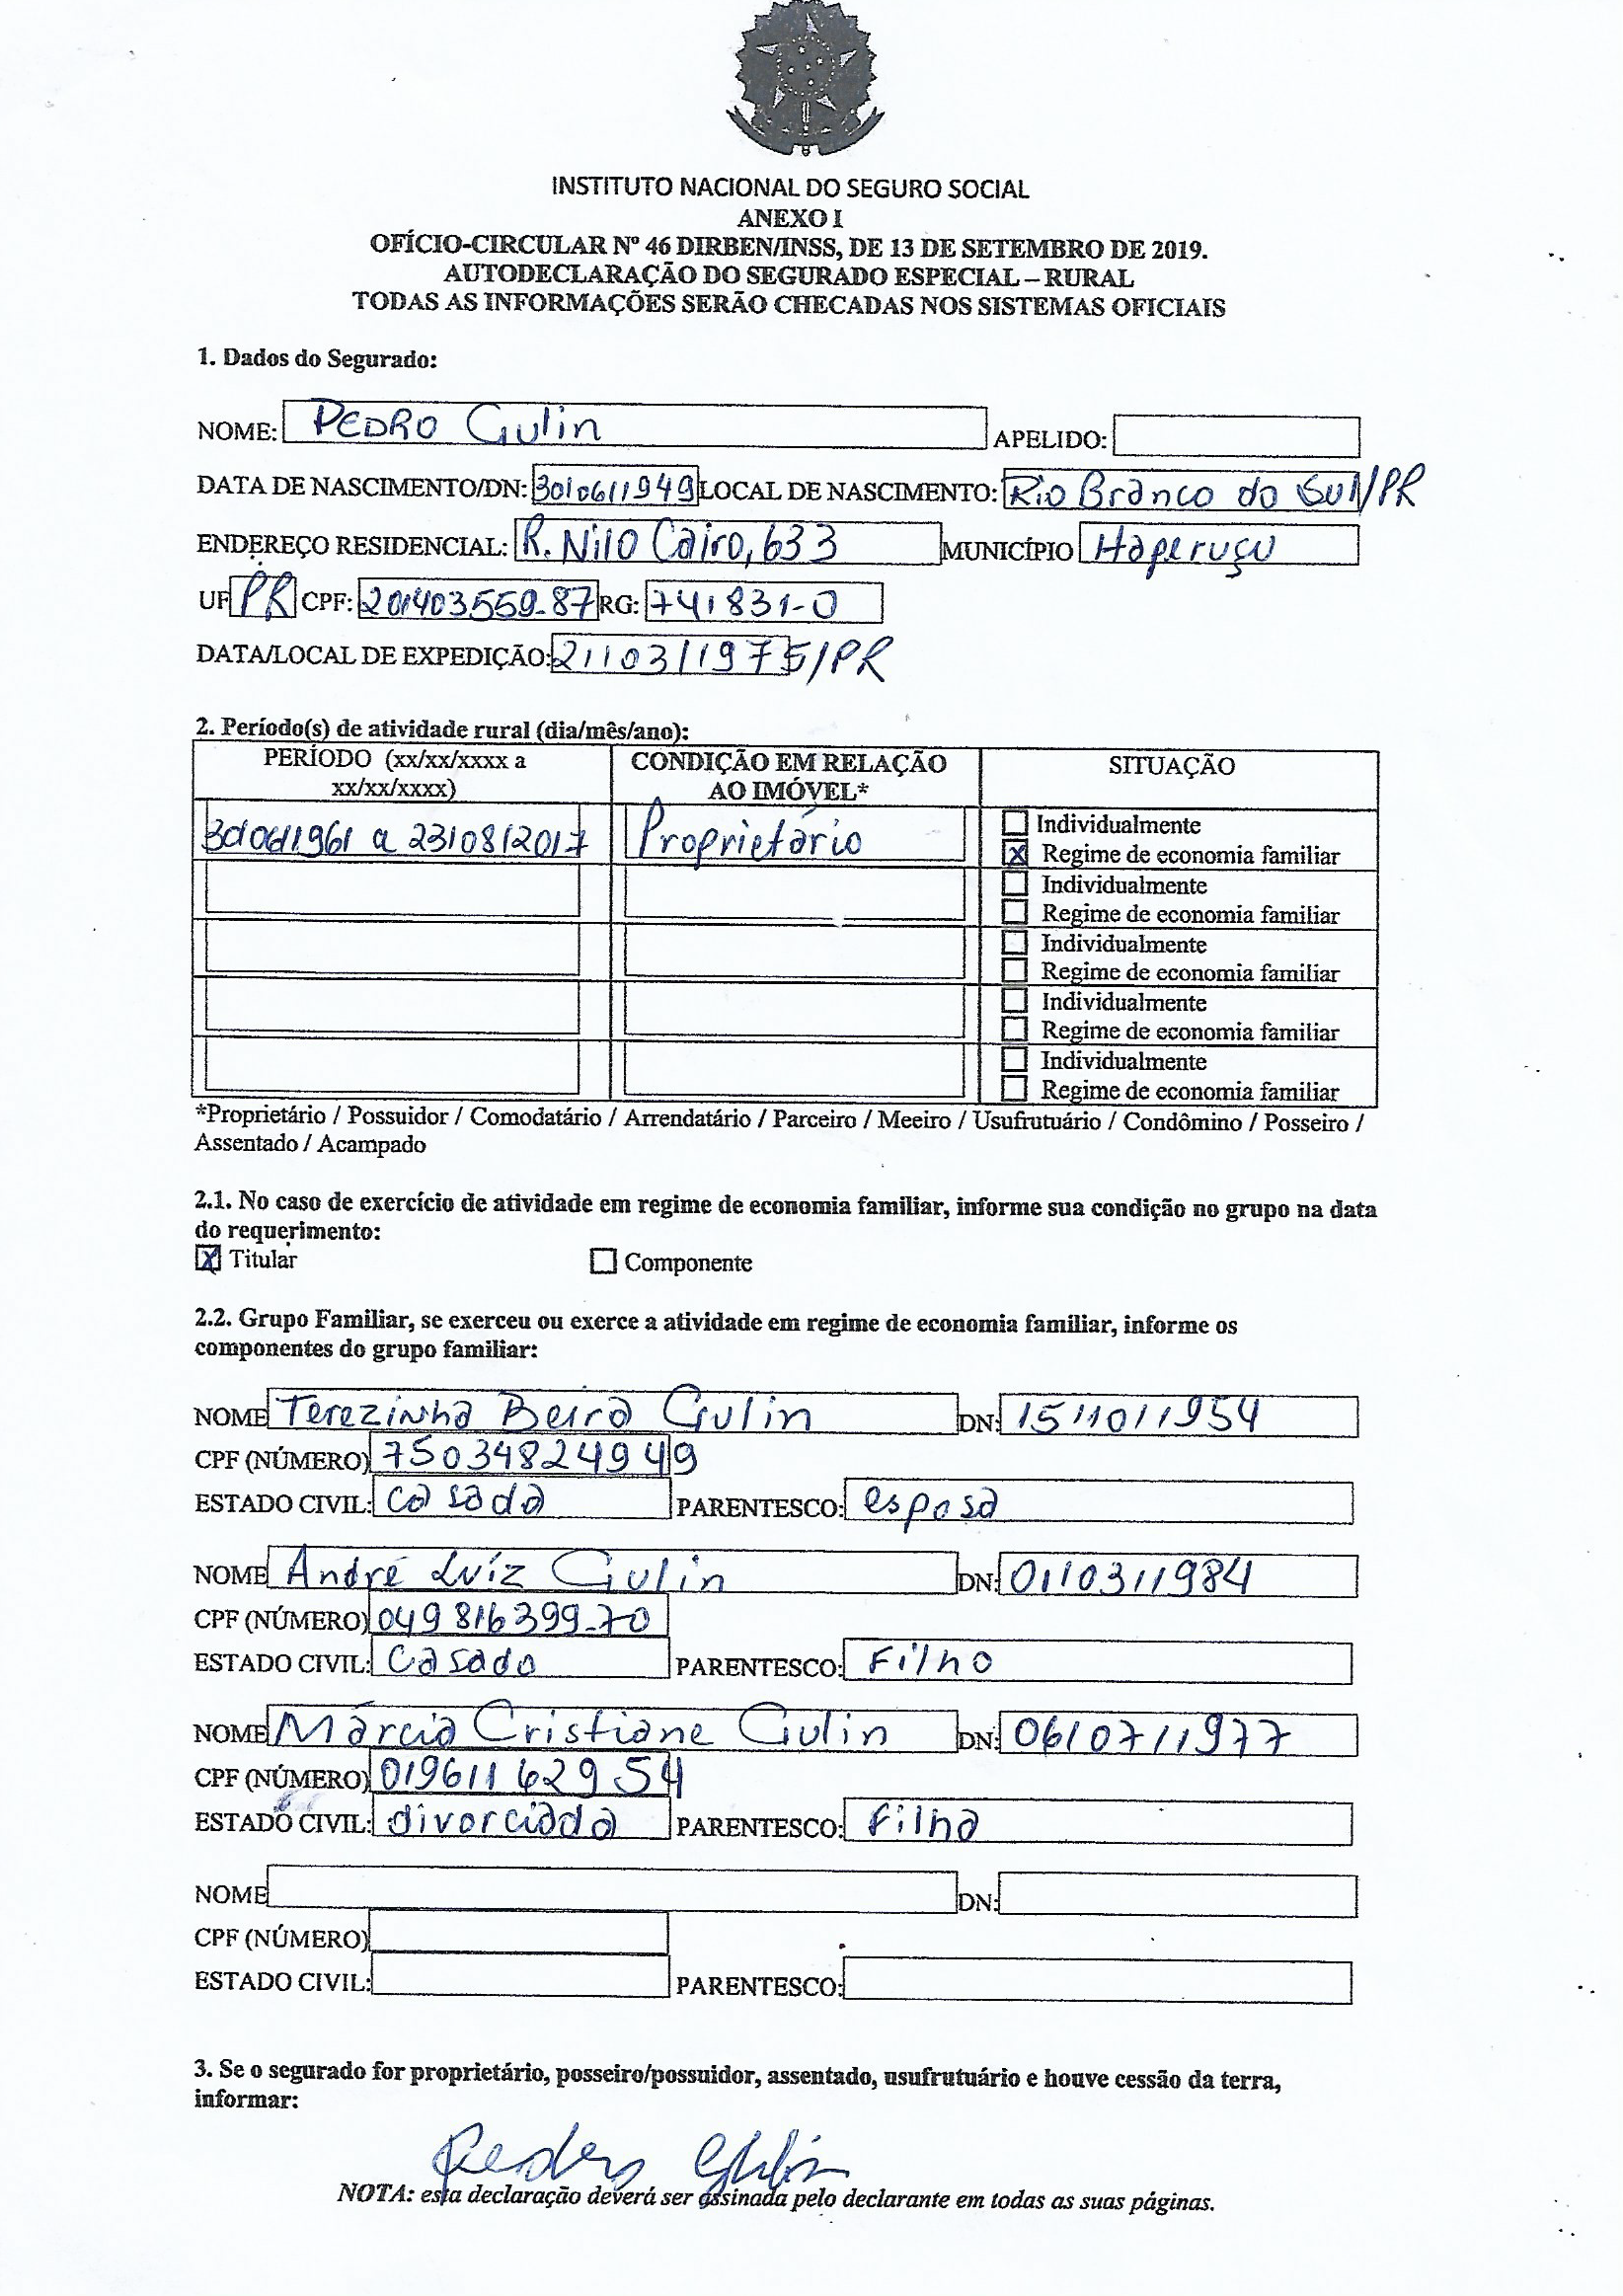 INSTITUTO NACIONAL DO SEGURO SOCIAL
ANEXO I
OFÍCIO-CIRCULAR Nº 46 DIRBEN/INSS, DE 13 DE SETEMBRO DE 2019.
AUTODECLARAÇÃO DO SEGURADO ESPECIAL – RURAL
TODAS AS INFORMAÇÕES SERÃO CHECADAS NOS SISTEMAS OFICIAIS
1. Dados do Segurado:
NOME: PEDRO Gulin APELIDO:
DATA DE NASCIMENTO/DN: 30/06/1949 LOCAL DE NASCIMENTO: Rio Branco do Sul/PR
ENDEREÇO RESIDENCIAL: R. Nilo Cairo, 633 MUNICÍPIO Itaperuçu
UF PR CPF: 201403559-87 RG: 741831-0
DATA/LOCAL DE EXPEDIÇÃO: 21/03/1975/PR
2. Período(s) de atividade rural (dia/mês/ano):
PERÍODO (xx/xx/xxxx a xx/xx/xxxx) CONDIÇÃO EM RELAÇÃO AO IMÓVEL* SITUAÇÃO
30/06/1961 a 23/08/2017 Proprietário Individualmente
X Regime de economia familiar
Individualmente
Regime de economia familiar
Individualmente
Regime de economia familiar
Individualmente
Regime de economia familiar
Individualmente
Regime de economia familiar
*Proprietário / Possuidor / Comodatário / Arrendatário / Parceiro / Meeiro / Usufrutuário / Condômino / Posseiro /
Assentado / Acampado
2.1. No caso de exercício de atividade em regime de economia familiar, informe sua condição no grupo na data
do requerimento:
X Titular Componente
2.2. Grupo Familiar, se exerceu ou exerce a atividade em regime de economia familiar, informe os
componentes do grupo familiar:
NOME Terezinha Beira Gulin DN: 15/10/1954
CPF (NÚMERO) 75034824949
ESTADO CIVIL: casada PARENTESCO: esposa
NOME André Luíz Gulin DN: 01/03/1984
CPF (NÚMERO) 049816399-70
ESTADO CIVIL: casado PARENTESCO: Filho
NOME Márcia Cristiane Gulin DN: 06/07/1977
CPF (NÚMERO) 01961162954
ESTADO CIVIL: divorciada PARENTESCO: Filha
NOME DN:
CPF (NÚMERO)
ESTADO CIVIL: PARENTESCO:
3. Se o segurado for proprietário, posseiro/possuidor, assentado, usufrutuário e houve cessão da terra,
informar:
Pedro Gulin
NOTA: esta declaração deverá ser assinada pelo declarante em todas as suas páginas.